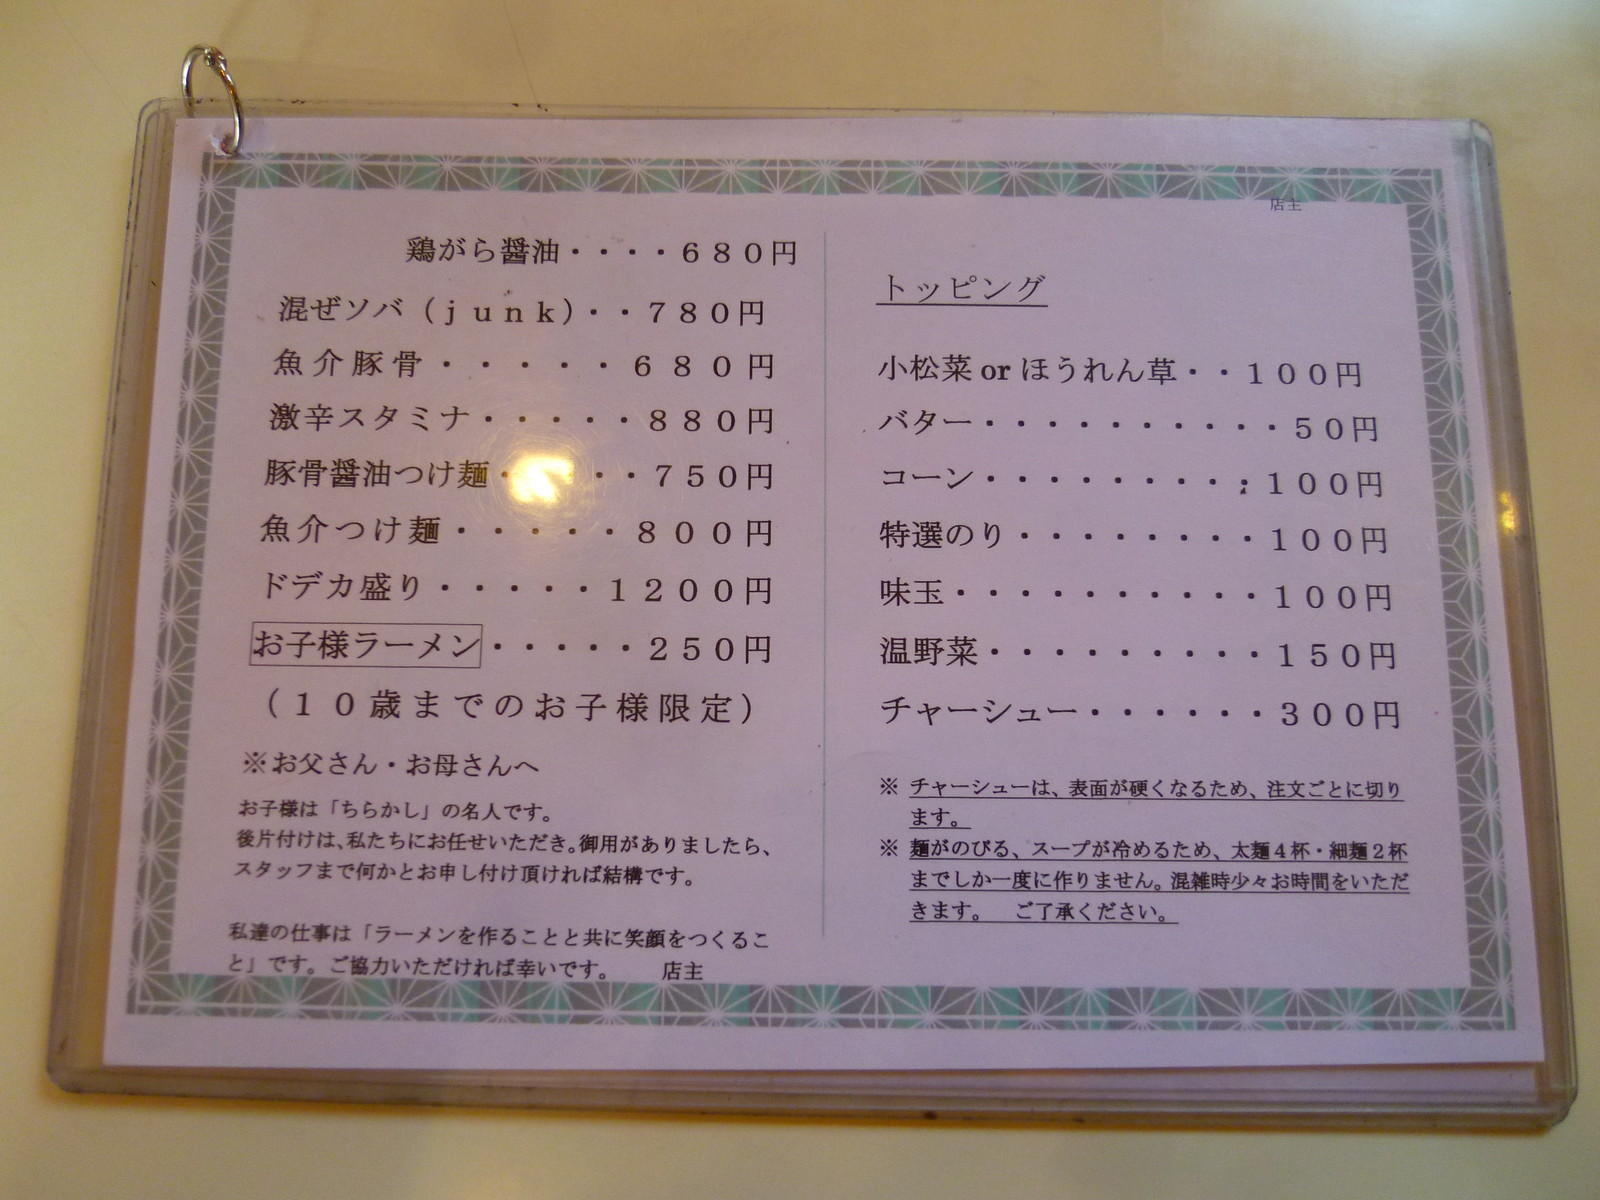 店主
鶏がら醤油・・・・６８０円
混ぜソバ（ｊｕｎｋ）・・７８０円
魚介豚骨・・・・・・６８０円
激辛スタミナ・・・・・８８０円
豚骨醤油つけ麺・・・・・７５０円
魚介つけ麺・・・・・・８００円
ドデカ盛り・・・・・１２００円
お子様ラーメン・・・・・２５０円
（１０歳までのお子様限定）
※お父さん・お母さんへ
お子様は「ちらかし」の名人です。
後片付けは、私たちにお任せいただき。御用がありましたら、
スタッフまで何かとお申し付け頂ければ結構です。
私達の仕事は「ラーメンを作ることと共に笑顔をつくるこ
と」です。ご協力いただければ幸いです。　　店主
トッピング
小松菜 or ほうれん草・・１００円
バター・・・・・・・・・・５０円
コーン・・・・・・・・・１００円
特選のり・・・・・・・・１００円
味玉・・・・・・・・・・１００円
温野菜・・・・・・・・・１５０円
チャーシュー・・・・・・３００円
※ チャーシューは、表面が硬くなるため、注文ごとに切り
ます。
※ 麺がのびる、スープが冷めるため、太麺４杯・細麺２杯
までしか一度に作りません。混雑時少々お時間をいただ
きます。　ご了承ください。